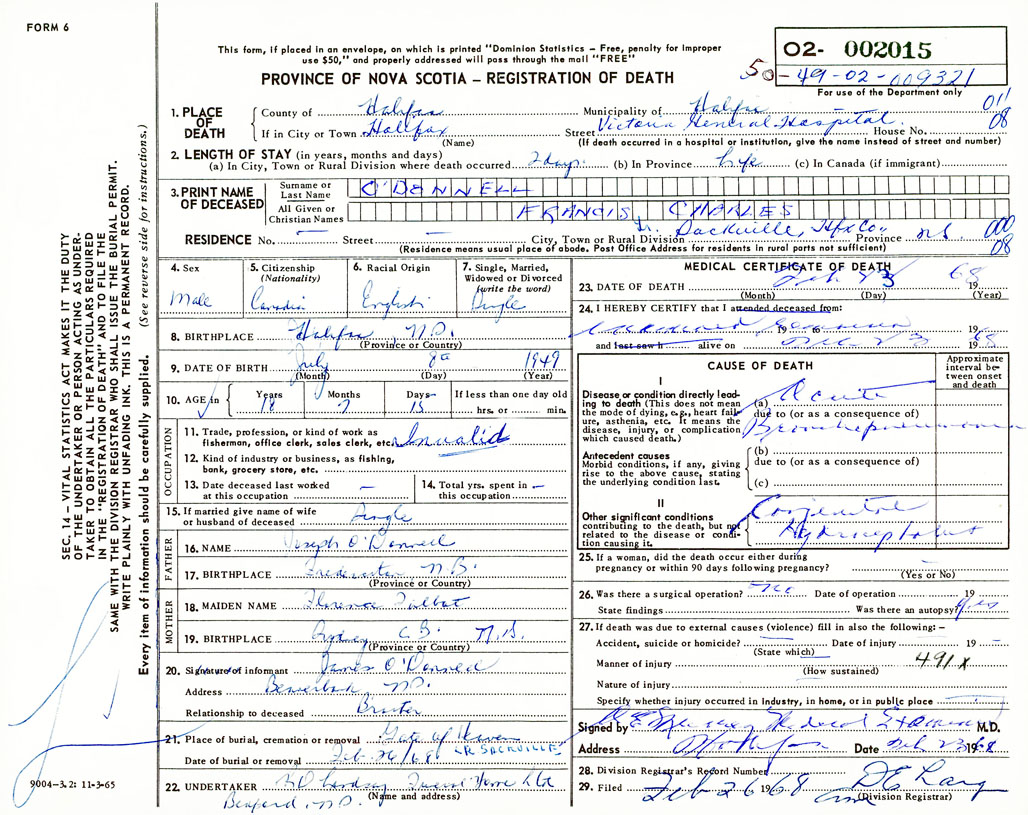 FORM 6
This form, if placed in an envelope, on which is printed "Dominion Statistics – Free, penalty for improper
use $50," and properly addressed will pass through the mail "FREE"
O2- 002015
50-49-02-009321
For use of the Department only
PROVINCE OF NOVA SCOTIA – REGISTRATION OF DEATH
011
08
1. PLACE OF DEATH
County of Halifax Municipality of Halifax
If in City or Town Halifax Street Victoria General Hospital House No.
(Name) (If death occurred in a hospital or institution, give the name instead of street and number)
2. LENGTH OF STAY (in years, months and days)
(a) In City, Town or Rural Division where death occurred 2 days (b) In Province Life (c) In Canada (if immigrant)
3. PRINT NAME OF DECEASED
Surname or Last Name O'DONNELL
All Given or Christian Names FRANCIS, CHARLES
RESIDENCE No. – Street – City, Town or Rural Division Lr. Sackville, Hfx Co., Province N.S.
000
08
(Residence means usual place of abode. Post Office Address for residents in rural parts not sufficient)
4. Sex
Male
5. Citizenship (Nationality)
Canadian
6. Racial Origin
English
7. Single, Married, Widowed or Divorced (write the word)
Single
8. BIRTHPLACE Halifax, N.S.
(Province or Country)
9. DATE OF BIRTH July 8th 1949
(Month) (Day) (Year)
10. AGE in Years 18 Months 7 Days 15 If less than one day old hrs. or min.
OCCUPATION
11. Trade, profession, or kind of work as fisherman, office clerk, sales clerk, etc. Invalid
12. Kind of industry or business, as fishing, bank, grocery store, etc.
13. Date deceased last worked at this occupation –
14. Total yrs. spent in this occupation –
15. If married give name of wife or husband of deceased Single
FATHER
16. NAME Joseph O'Donnell
17. BIRTHPLACE Fredericton N.B.
(Province or Country)
MOTHER
18. MAIDEN NAME Florence Talbot
19. BIRTHPLACE Sydney C.B. N.S.
(Province or Country)
20. Signature of informant James O'Donnell
Address Beaverbank N.S.
Relationship to deceased Brother
21. Place of burial, cremation or removal Gate of Heaven
LR SACKVILLE
Date of burial or removal Feb 26/68
22. UNDERTAKER Lindsay Funeral Home Ltd
(Name and address)
MEDICAL CERTIFICATE OF DEATH
23. DATE OF DEATH Feb 23 1968
(Month) (Day) (Year)
24. I HEREBY CERTIFY that I attended deceased from:
19 19
and last saw h alive on 23 1968
CAUSE OF DEATH
Approximate interval between onset and death
I
Disease or condition directly leading to death (This does not mean the mode of dying, e.g., heart failure, asthenia, etc. It means the disease, injury, or complication which caused death.)
(a) Acute
due to (or as a consequence of)
Bronchopneumonia
Antecedent causes
Morbid conditions, if any, giving rise to the above cause, stating the underlying condition last.
(b)
due to (or as a consequence of)
(c)
II
Other significant conditions contributing to the death, but not related to the disease or condition causing it.
Congenital
Hydrocephalus
25. If a woman, did the death occur either during pregnancy or within 90 days following pregnancy? –
(Yes or No)
26. Was there a surgical operation? No Date of operation 19
State findings Was there an autopsy? Yes
27. If death was due to external causes (violence) fill in also the following: –
Accident, suicide or homicide? Date of injury 19
(State which)
Manner of injury 491 x
(How sustained)
Nature of injury
Specify whether injury occurred in Industry, in home, or in public place
Signed by Medical Examiner M.D.
Address Halifax Date Feb 23 1968
28. Division Registrar's Record Number
29. Filed Feb 26 1968
(Division Registrar)
SEC. 14 – VITAL STATISTICS ACT MAKES IT THE DUTY
OF THE UNDERTAKER OR PERSON ACTING AS UNDER-
TAKER TO OBTAIN ALL THE PARTICULARS REQUIRED
IN THE "REGISTRATION OF DEATH" AND TO FILE THE
SAME WITH THE DIVISION REGISTRAR WHO SHALL ISSUE THE BURIAL PERMIT.
WRITE PLAINLY WITH UNFADING INK. THIS IS A PERMANENT RECORD.
Every item of information should be carefully supplied. (See reverse side for instructions.)
9004–3.2: 11-3-65